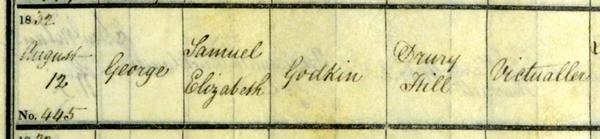 1832
August
12
George
Samuel
Elizabeth
Godkin
Drury
Hill
Victualler
No. 445
18